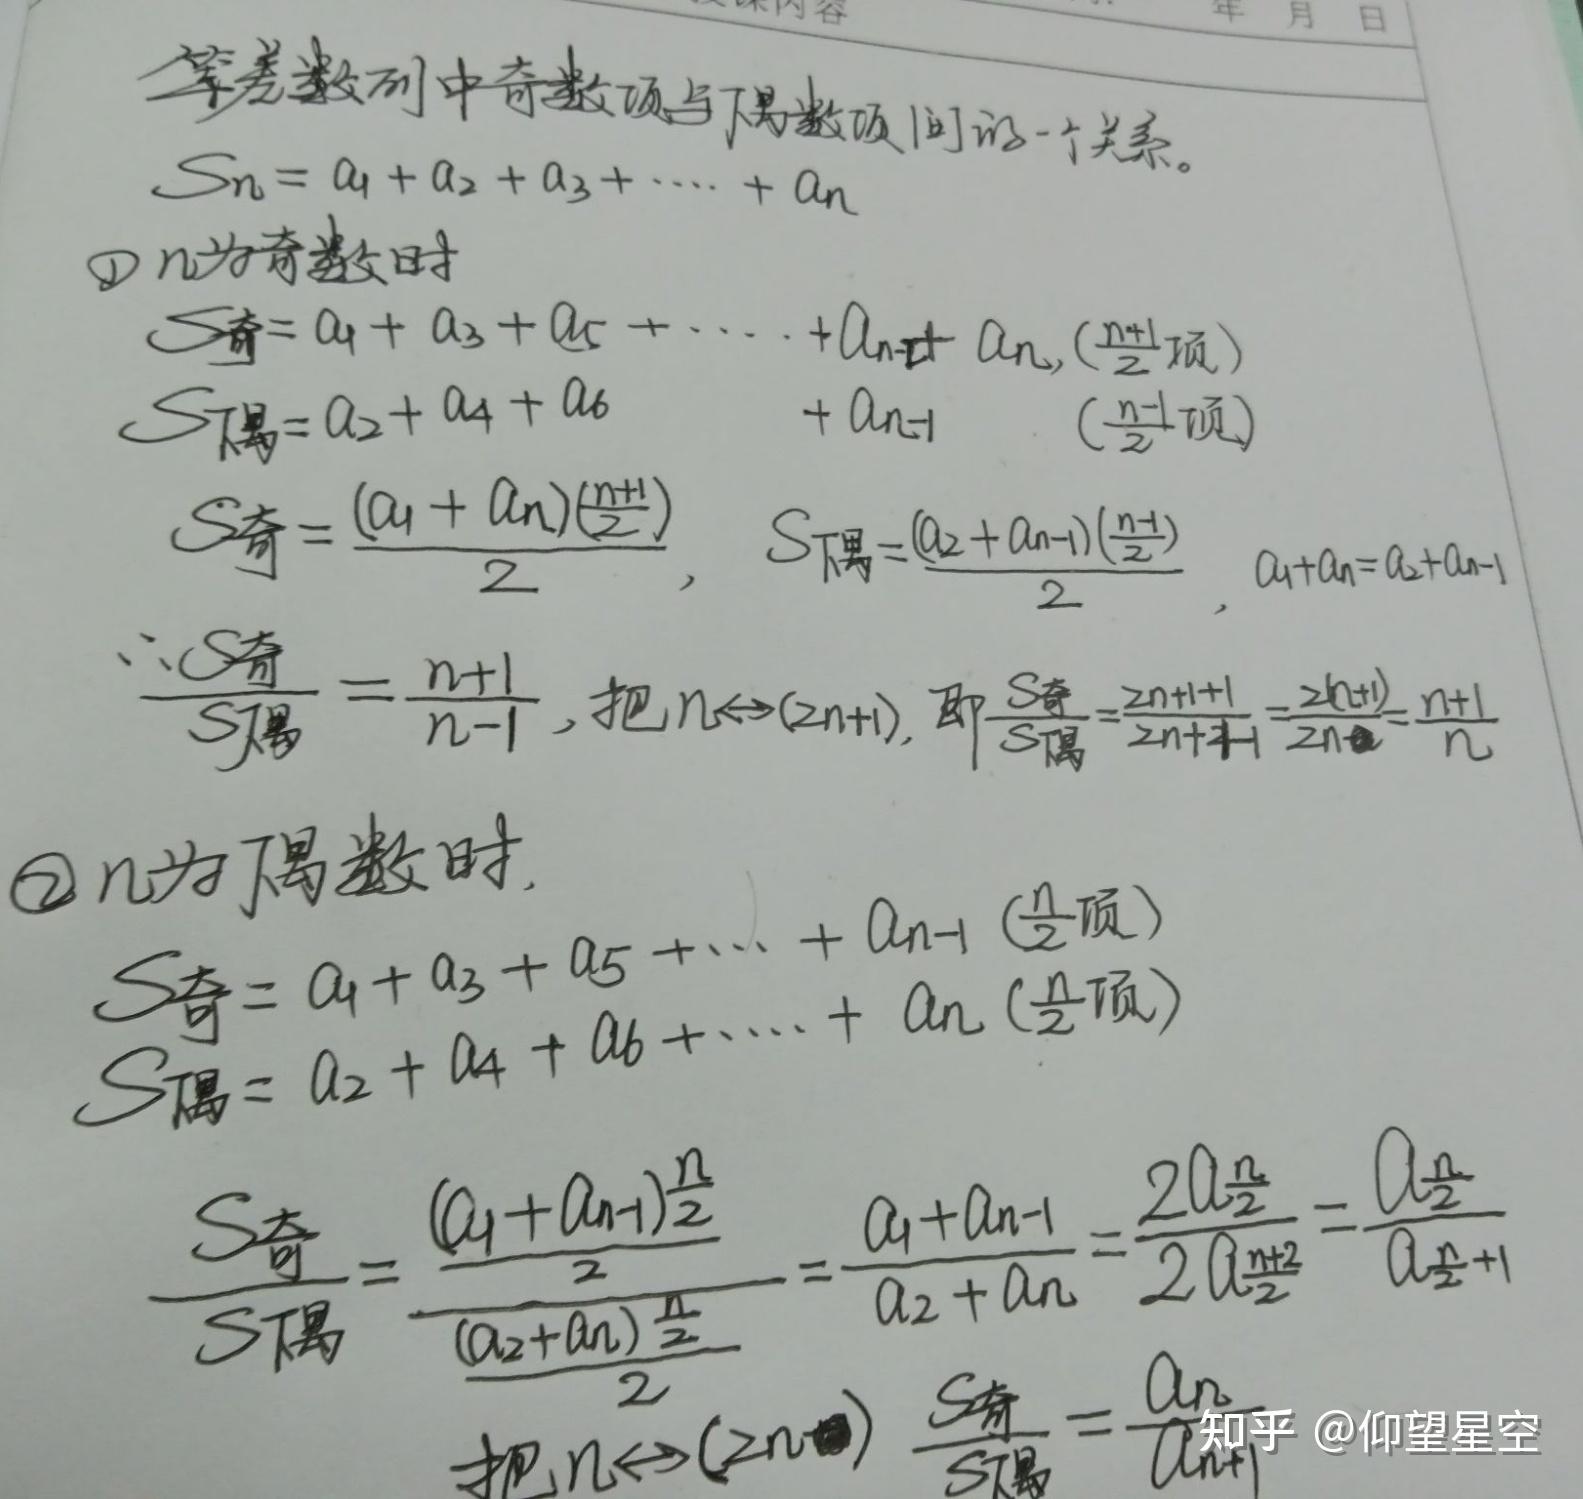 授课内容 年 月 日
等差数列中奇数项与偶数项间的一个关系。
Sn = a1 + a2 + a3 + ····· + an
① n为奇数时
S奇 = a1 + a3 + a5 + ····· + an-2 + an, (\frac{n+1}{2}项)
S偶 = a2 + a4 + a6 + an-1 (\frac{n-1}{2}项)
S奇 = \frac{(a1 + an)(\frac{n+1}{2})}{2}, S偶 = \frac{(a2 + an-1)(\frac{n-1}{2})}{2}, a1+an = a2+an-1
∴ \frac{S奇}{S偶} = \frac{n+1}{n-1}, 把n↔(2n+1), 即 \frac{S奇}{S偶} = \frac{2n+1+1}{2n+1-1} = \frac{2(n+1)}{2n} = \frac{n+1}{n}
② n为偶数时.
S奇 = a1 + a3 + a5 + ··· + an-1 (\frac{n}{2}项)
S偶 = a2 + a4 + a6 + ····· + an (\frac{n}{2}项)
\frac{S奇}{S偶} = \frac{\frac{(a1+an-1)\frac{n}{2}}{2}}{\frac{(a2+an)\frac{n}{2}}{2}} = \frac{a1+an-1}{a2+an} = \frac{2a\frac{n}{2}}{2a\frac{n+2}{2}} = \frac{a\frac{n}{2}}{a\frac{n}{2}+1}
把n↔(2n) \frac{S奇}{S偶} = \frac{an}{an+1}
知乎 @仰望星空